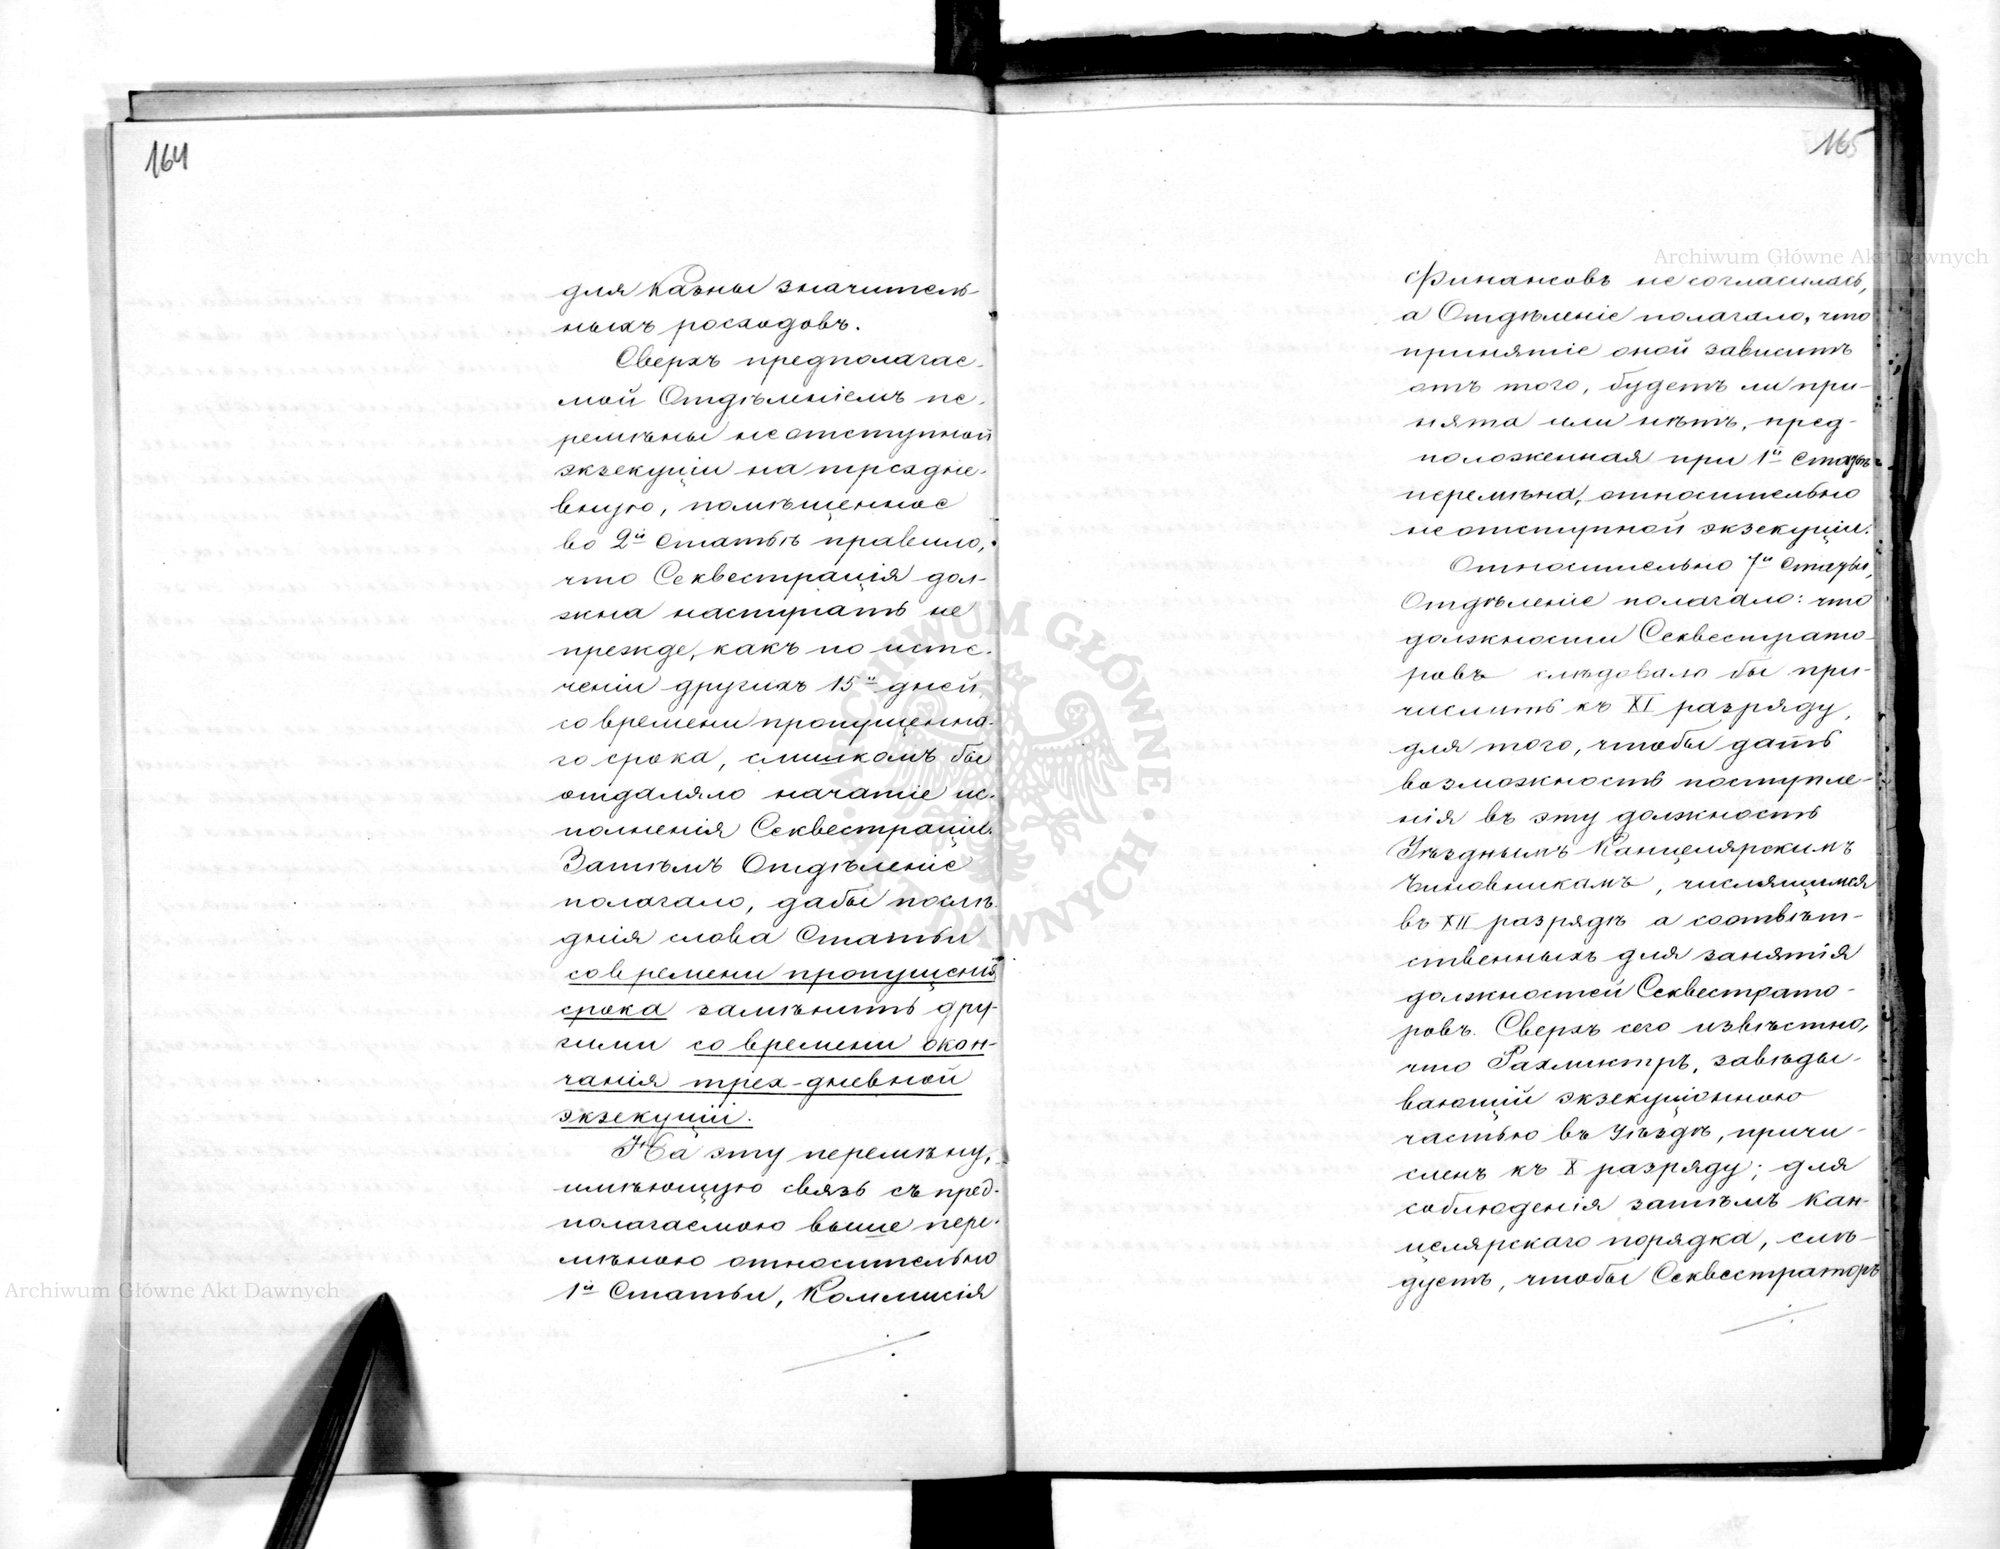 164
для Казны значитель-
ныхъ росходовъ.
Сверхъ предполагае-
мой Отдѣленіемъ пе-
ремѣны неотступной
экзекуціи на трехдне-
вную, помѣщенное
во 2й Статьѣ правило,
что Секвестрація дол-
жна наступать не
прежде, какъ по исте-
ченіи другихъ 15и дней,
со времени пропущенна-
го срока, слишкомъ бы
отдаляло начатіе ис-
полненія Секвестраціи.
Затѣмъ Отдѣленіе
полагало, дабы послѣ-
днія слова Статьи
со времени пропущенія
срока замѣнить дру-
гими со времени окон-
чанія трех-дневной
экзекуціи.
На эту перемѣну,
имѣющую связь съ пред-
полагаемою выше пере-
мѣною относительно
1й Статьи, Коммисія
165
Финансовъ не согласилась,
а Отдѣленіе полагало, что
принятіе оной зависитъ
отъ того, будетъ ли при-
нята или нѣтъ, пред-
положенная при 1й Статьѣ
перемѣна, относительно
неотступной экзекуціи.
Относительно 7й Статьи,
Отдѣленіе полагало: что
должности Секвестрато-
ровъ слѣдовало бы при-
числить къ XI разряду,
для того, чтобы дать
возможность поступле-
нія въ эту должность
Уѣзднымъ Канцелярскимъ
Чиновникамъ, числящимся
въ XII разрядѣ а соотвѣт-
ственныхъ для занятія
должностей Секвестрато-
ровъ. Сверхъ сего извѣстно,
что Рахмистръ, завѣды-
вающій экзекуціонною
частью въ Уѣздѣ, причи-
сленъ къ X разряду; для
соблюденія затѣмъ Кан-
целярскаго порядка, слѣ-
дуетъ, чтобы Секвестраторъ
Archiwum Główne Akt Dawnych
Archiwum Główne Akt Dawnych
ARCHIWUM GŁÓWNE AKT DAWNYCH